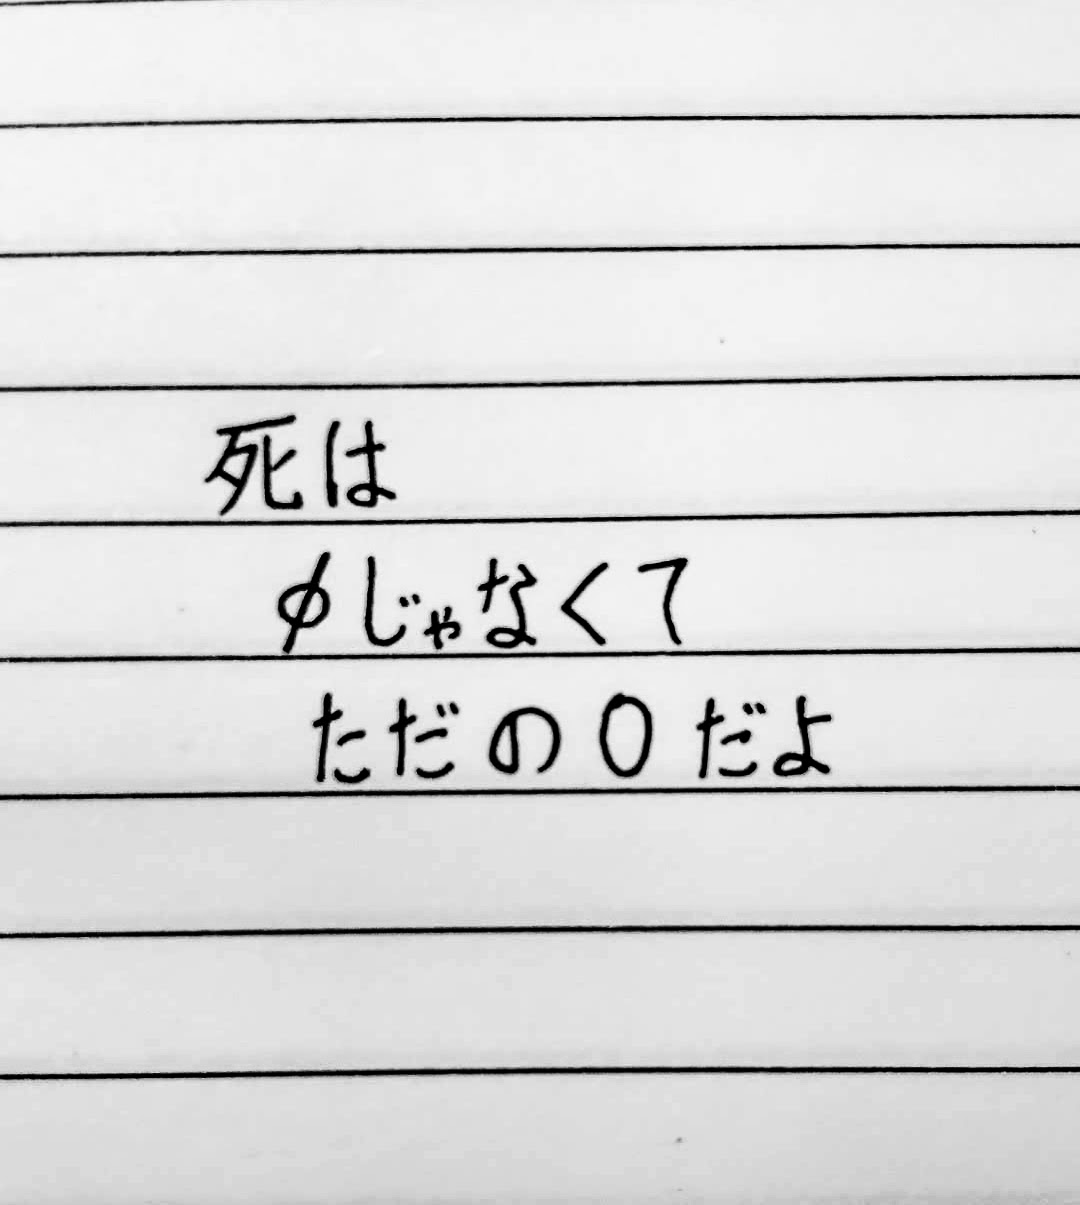 死は
φじゃなくて
ただの0だよ